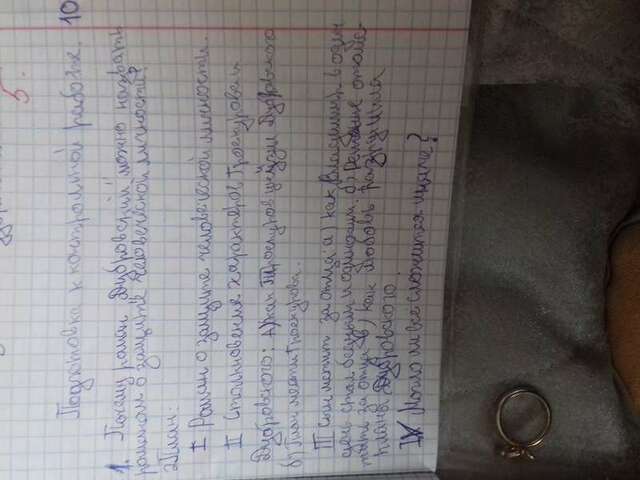 5.
Подготовка к контрольной работе. 10
1. Почему роман „Дубровский" можно назвать
романом о защите человеческой личности?
2План:
I Роман о защите человеческой личности.
II Столкновение характеров Троекурова и
Дубровского: а) как Троекуров Дубровского
б) План мести Троекурова.
III Сын мстит за отца: а) как Владимир в один
день стал бедным и одиноким. б) Решение отомс-
тить за отца в) как любовь разрушила
планы Дубровского.
IV Могло ли всё сложиться иначе?